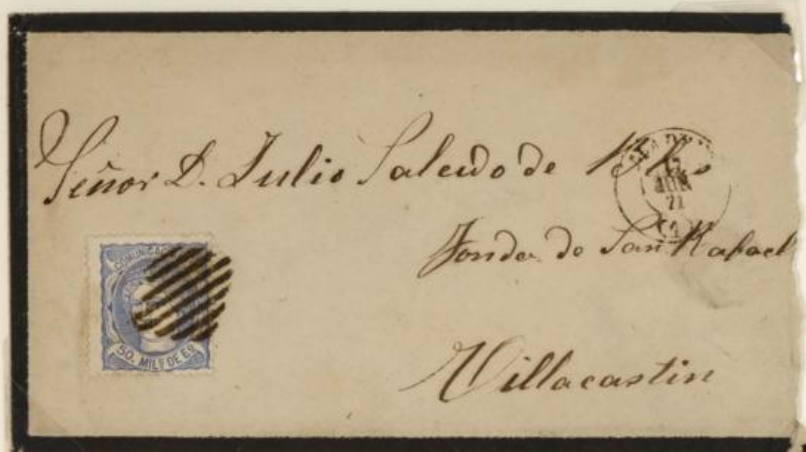 Señor D. Julio Salcedo de
MADRID
17
JUN
71
(1)
Fonda de San Rafael
Villacastin
COMUNICAC
50. MILS DE E